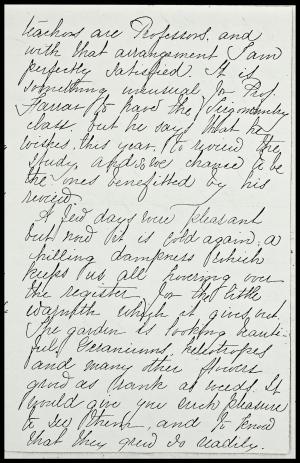 teachers are Professors, and
with that arrangement I am
perfectly satisfied. It is
something unusual for Prof.
Farrar to have the Trigonometry
class, but he says that he
wishes, this year, to review the
study, and so we chance to be
the ones benefitted by his
review.
A few days were pleasant
but now it is cold again, a
chilling dampness which
keeps us all hovering over
the register, for the little
warmth which it gives out.
The garden is looking beauti-
ful, Geraniums, heliotropes
and many other flowers
grow as rank as weeds. It
would give you such pleasure
to see them, and to know
that they grew so readily.